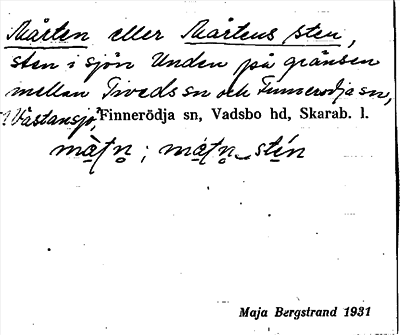 Mårten eller Mårtens sten,
sten i sjön Unden på gränsen
mellan Tiveds sn och Finnerödja sn,
? Västansjö, Finnerödja sn, Vadsbo hd, Skarab. l.
Maja Bergstrand 1931